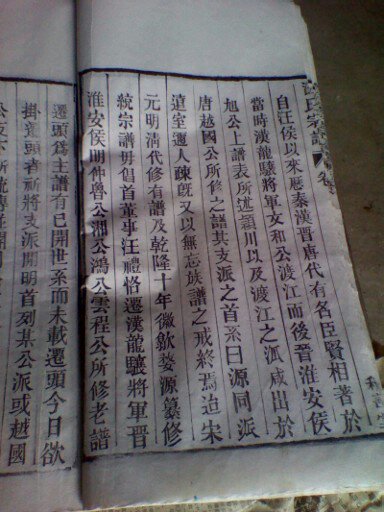 自汪侯以來歷秦漢晉唐代有名臣賢相著於
當時漢龍驤將軍文和公渡江而後晉淮安侯
旭公上譜表所述潁川以及渡江之派咸出於
唐越國公所修之譜其支派之首系曰源同派
遠室邇人疎旣又以無忘族譜之戒終焉迨宋
元明清代修有譜及乾隆十年徽歙婺源纂修
統宗譜毋倡首董事汪禮恪遷漢龍驤將軍晉
淮安侯明仲魯公湘公鴻公雲程公所修老譜
遷頭爲主譜有已開世系而未載遷頭今日欲
掛遷頭者祈將支派開明首列某公派或越國